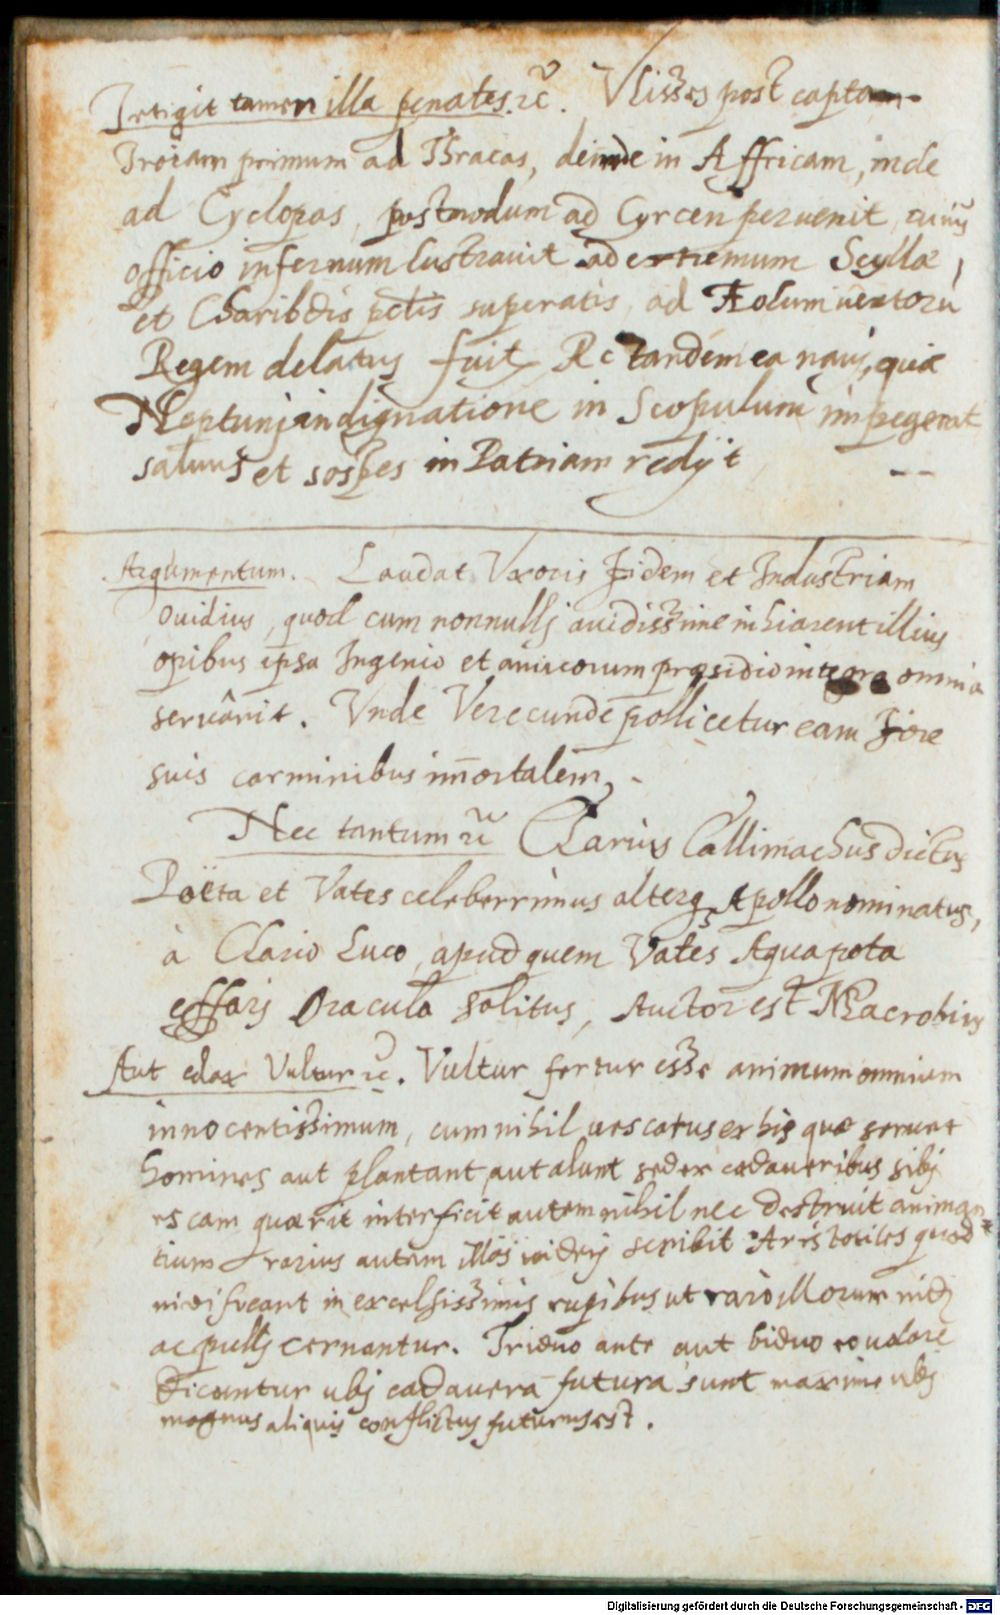 Tetigit tamen illa penates. &c. Vlisses post captam
Troiam primum ad Thracas, deinde in Affricam, inde
ad Cyclopas, postmodum ad Cyrcen peruenit, cuius
officio infernum lustrauit ad extremum Scylla,
et Charibdis superatis, ad Æolum uentorũ
Regem delatus fuit Ac tandem ea naui, quæ
Neptunj indignatione in Scopulum impegerat
saluus et sospes in Patriam redijt
Argumentum. Laudat Vxoris Fidem et Industriam
Ouidius, quod cum nonnullj auidissime inhiarent illius
opibus ipsa Ingenio et amicorum præsidio integra omnia
seruârit. Vnde Verecunde pollicetur eam Fore
suis carminibus im̄ortalem.
Nec tantum &c Clarius Callimachus dictus
Poëta et Vates celeberrimus alterq; Apollo nominatus,
à Clario Luco, apud quem Vates Aqua pota
effarj Oracula solitus, Auctor est Macrobius
Aut edax Vultur &c. Vultur fertur esse animum omnium
innocentissimum, cum nihil uescatur ex his quæ serunt
homines aut plantant aut alunt sed ex cadaueribus sibj
escam quærit interficit autem nihil nec destruit animan=
tium rarius autem illos uiderj scribit Aristotiles quod
nidificant in excelsissimis rupibus ut rarò illorum nidi
ac pullj cernantur. Triduo ante aut biduo eo uolare
Dicuntur ubj cadauera futura sunt maxime ubj
magnus aliquis conflictus futurus est.
Digitalisierung gefördert durch die Deutsche Forschungsgemeinschaft - DFG